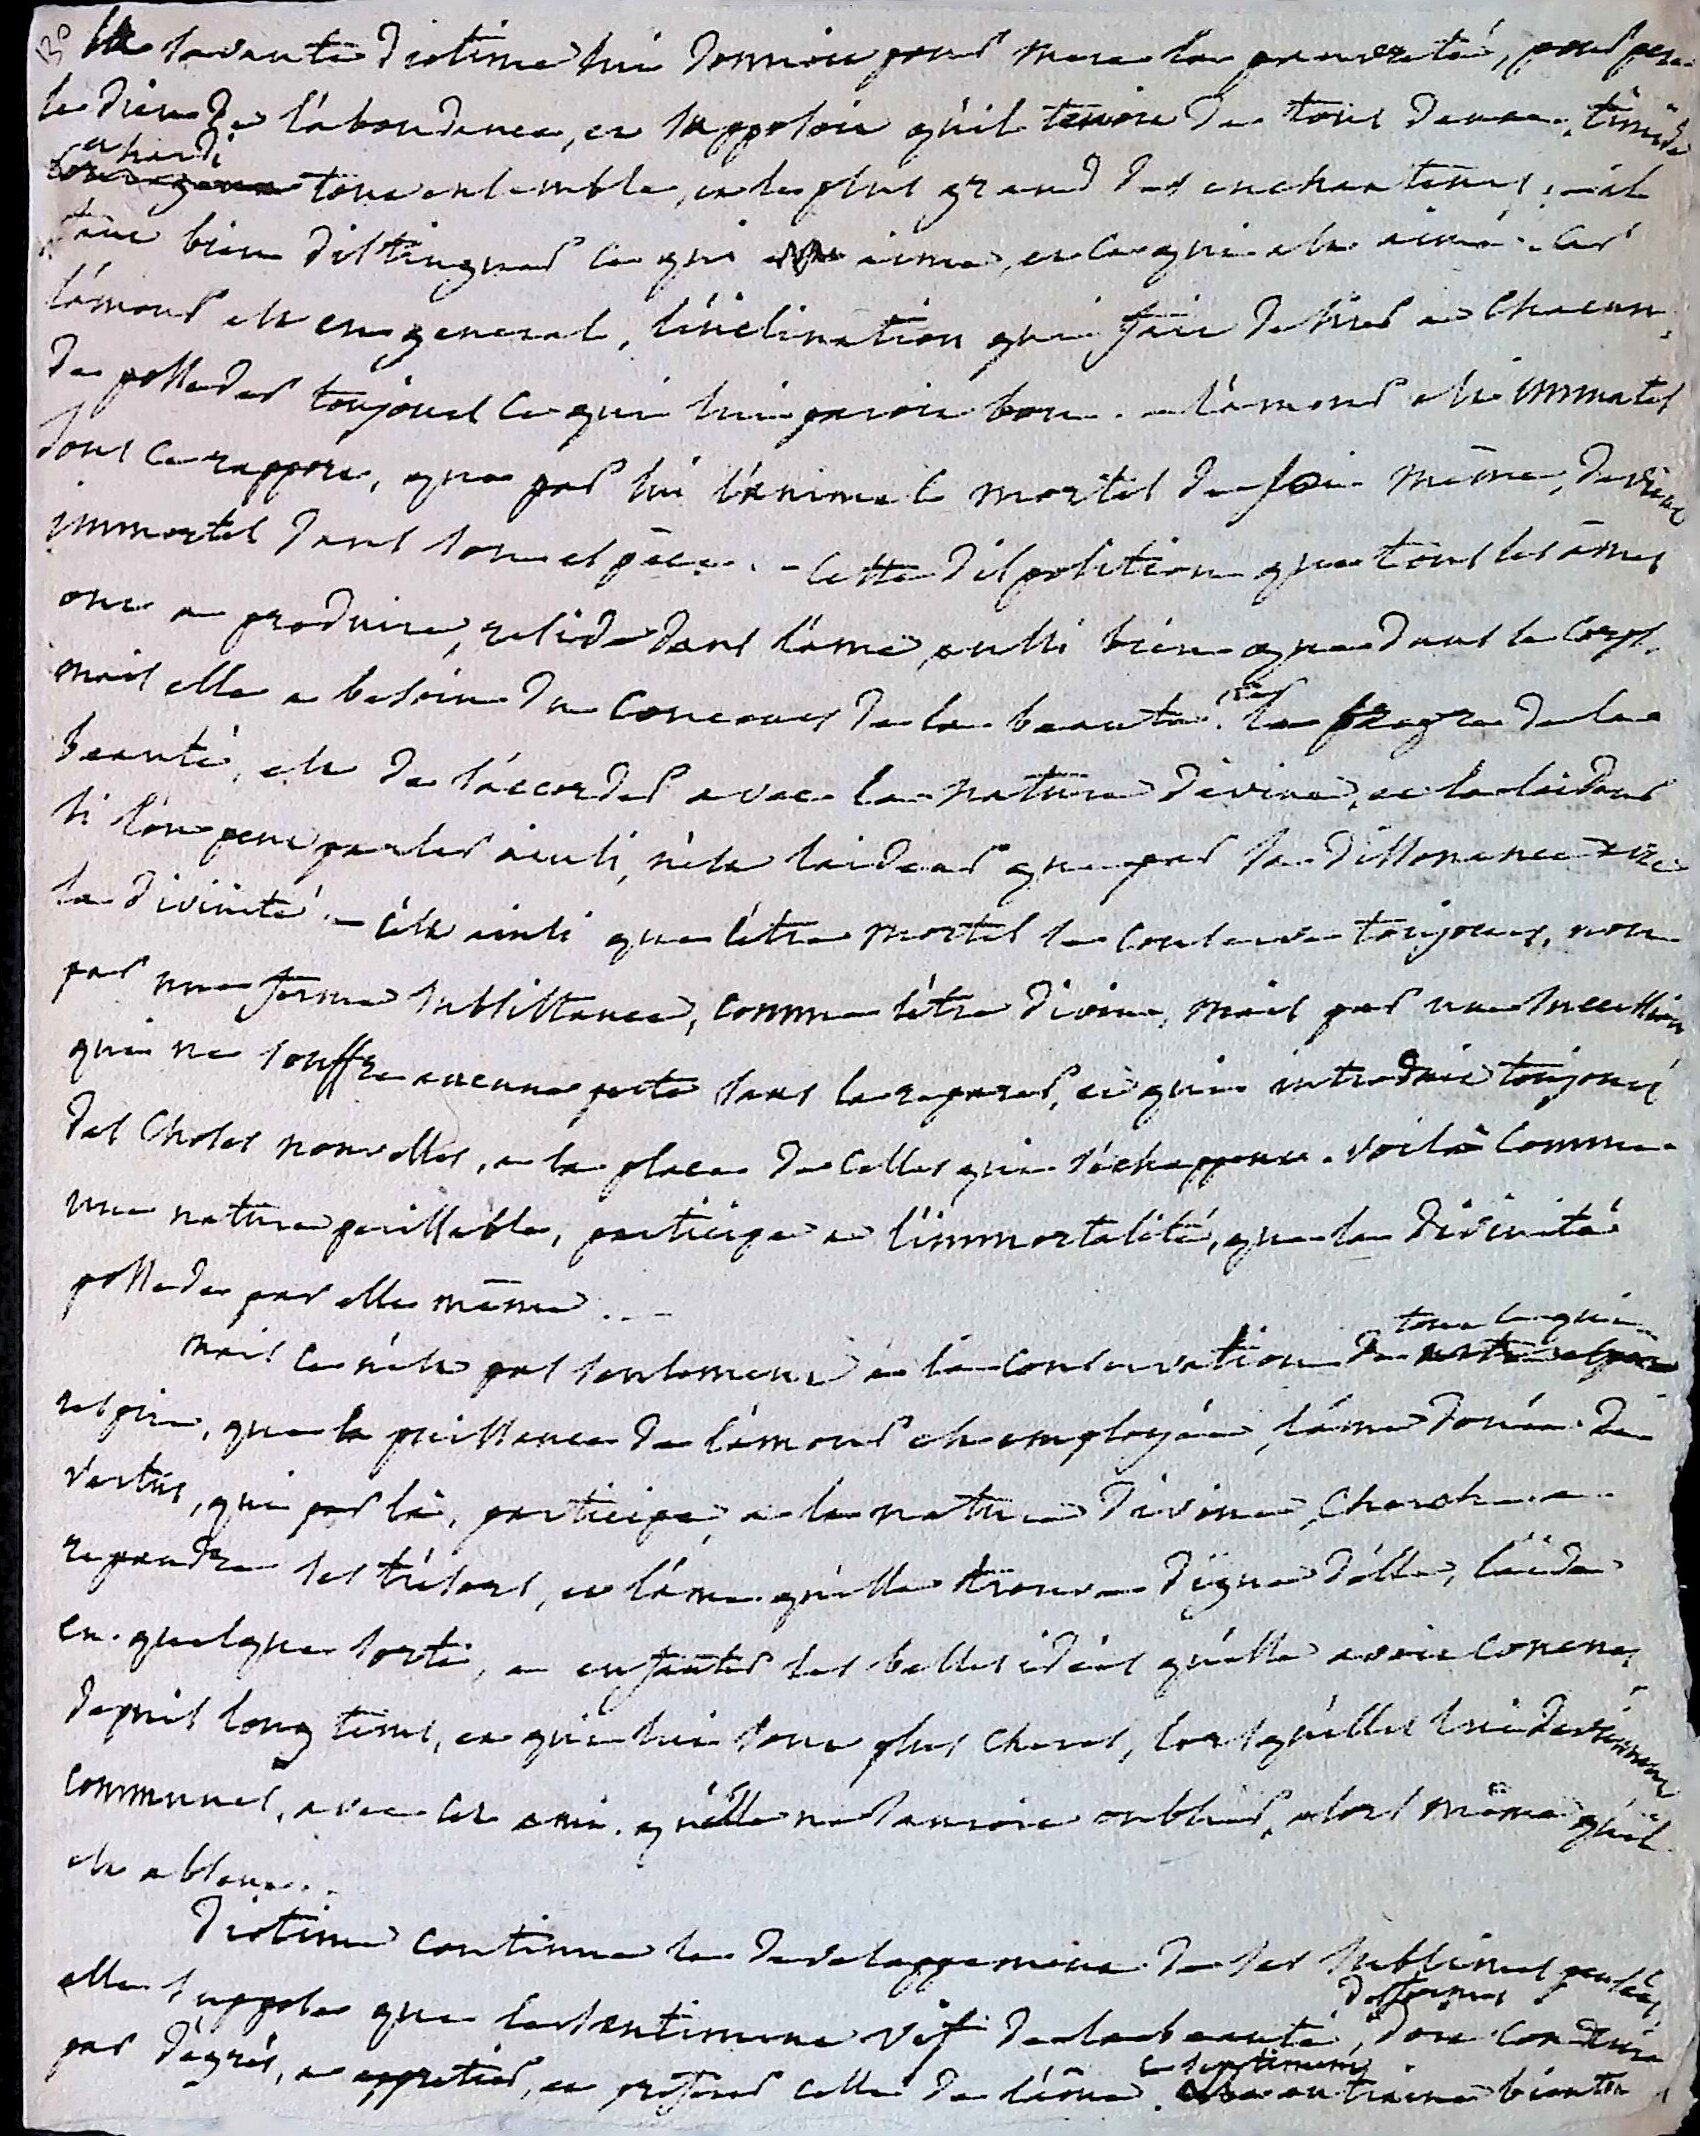 130 la savante diotime lui donnoit pour mere la pauvreté, pour pere
le dieu de l'abondance, et supposoit qu'il tenoit de tous deux. timide
et hardi tout ensemble, et le plus grand des enchanteurs. il
faut bien distinguer ce qui aime, et ce qui est aimé. car
l'amour est en general, l'inclination qui fait desirer a chacun,
de posseder toujours ce qui lui paroit bon. l'amour est immortel
sous ce rapport, que par lui l'animal mortel de soi même, devient
immortel dans son espèce. - cette disposition que tous les âmes
ont a produire, reside dans l'ame, aussi bien que dans le corps.
mais elle a besoin du concours de la beauté. le propre de la
beauté, est de s'accorder avec la nature divine, et la laideur
si l'on peut parler ainsi, n'est laideur que par sa dissonance avec
la divinité. - c'est ainsi que l'être mortel se conserve toujours, non
par une ferme subsistance, comme l'être divin, mais par une succession
qui ne souffre aucune perte sans la reparer, et qui introduit toujours
des choses nouvelles, a la place de celles qui s'échappent. voilà comme
une nature perissable, participe a l'immortalité, que la divinité
possede par elle même...
mais ce n'est pas seulement a la conservation de tout ce qui
respire, que la puissance de l'amour est employée, l'ame douée de
vertus, qui par là, participe, a la nature divine, cherche a
repandre ses trésors, et l'ame qu'elle trouve digne d'elle, l'aide
en quelque sorte, a enfanter les belles idées qu'elle avoit conçues,
depuis long tems, et qui lui sont plus cheres, lorsqu'elles lui deviennent
communes, avec cet ami, qu'elle ne sauroit oublier, alors même qu'il
est absent..
Diotime continue le developpement de ses sublimes pensées
elle suppose que le sentiment vif de la beauté des formes, doit conduire
par dégrés, a apprétier, et préferer celle de l'âme. ce sentiment entraine bientôt